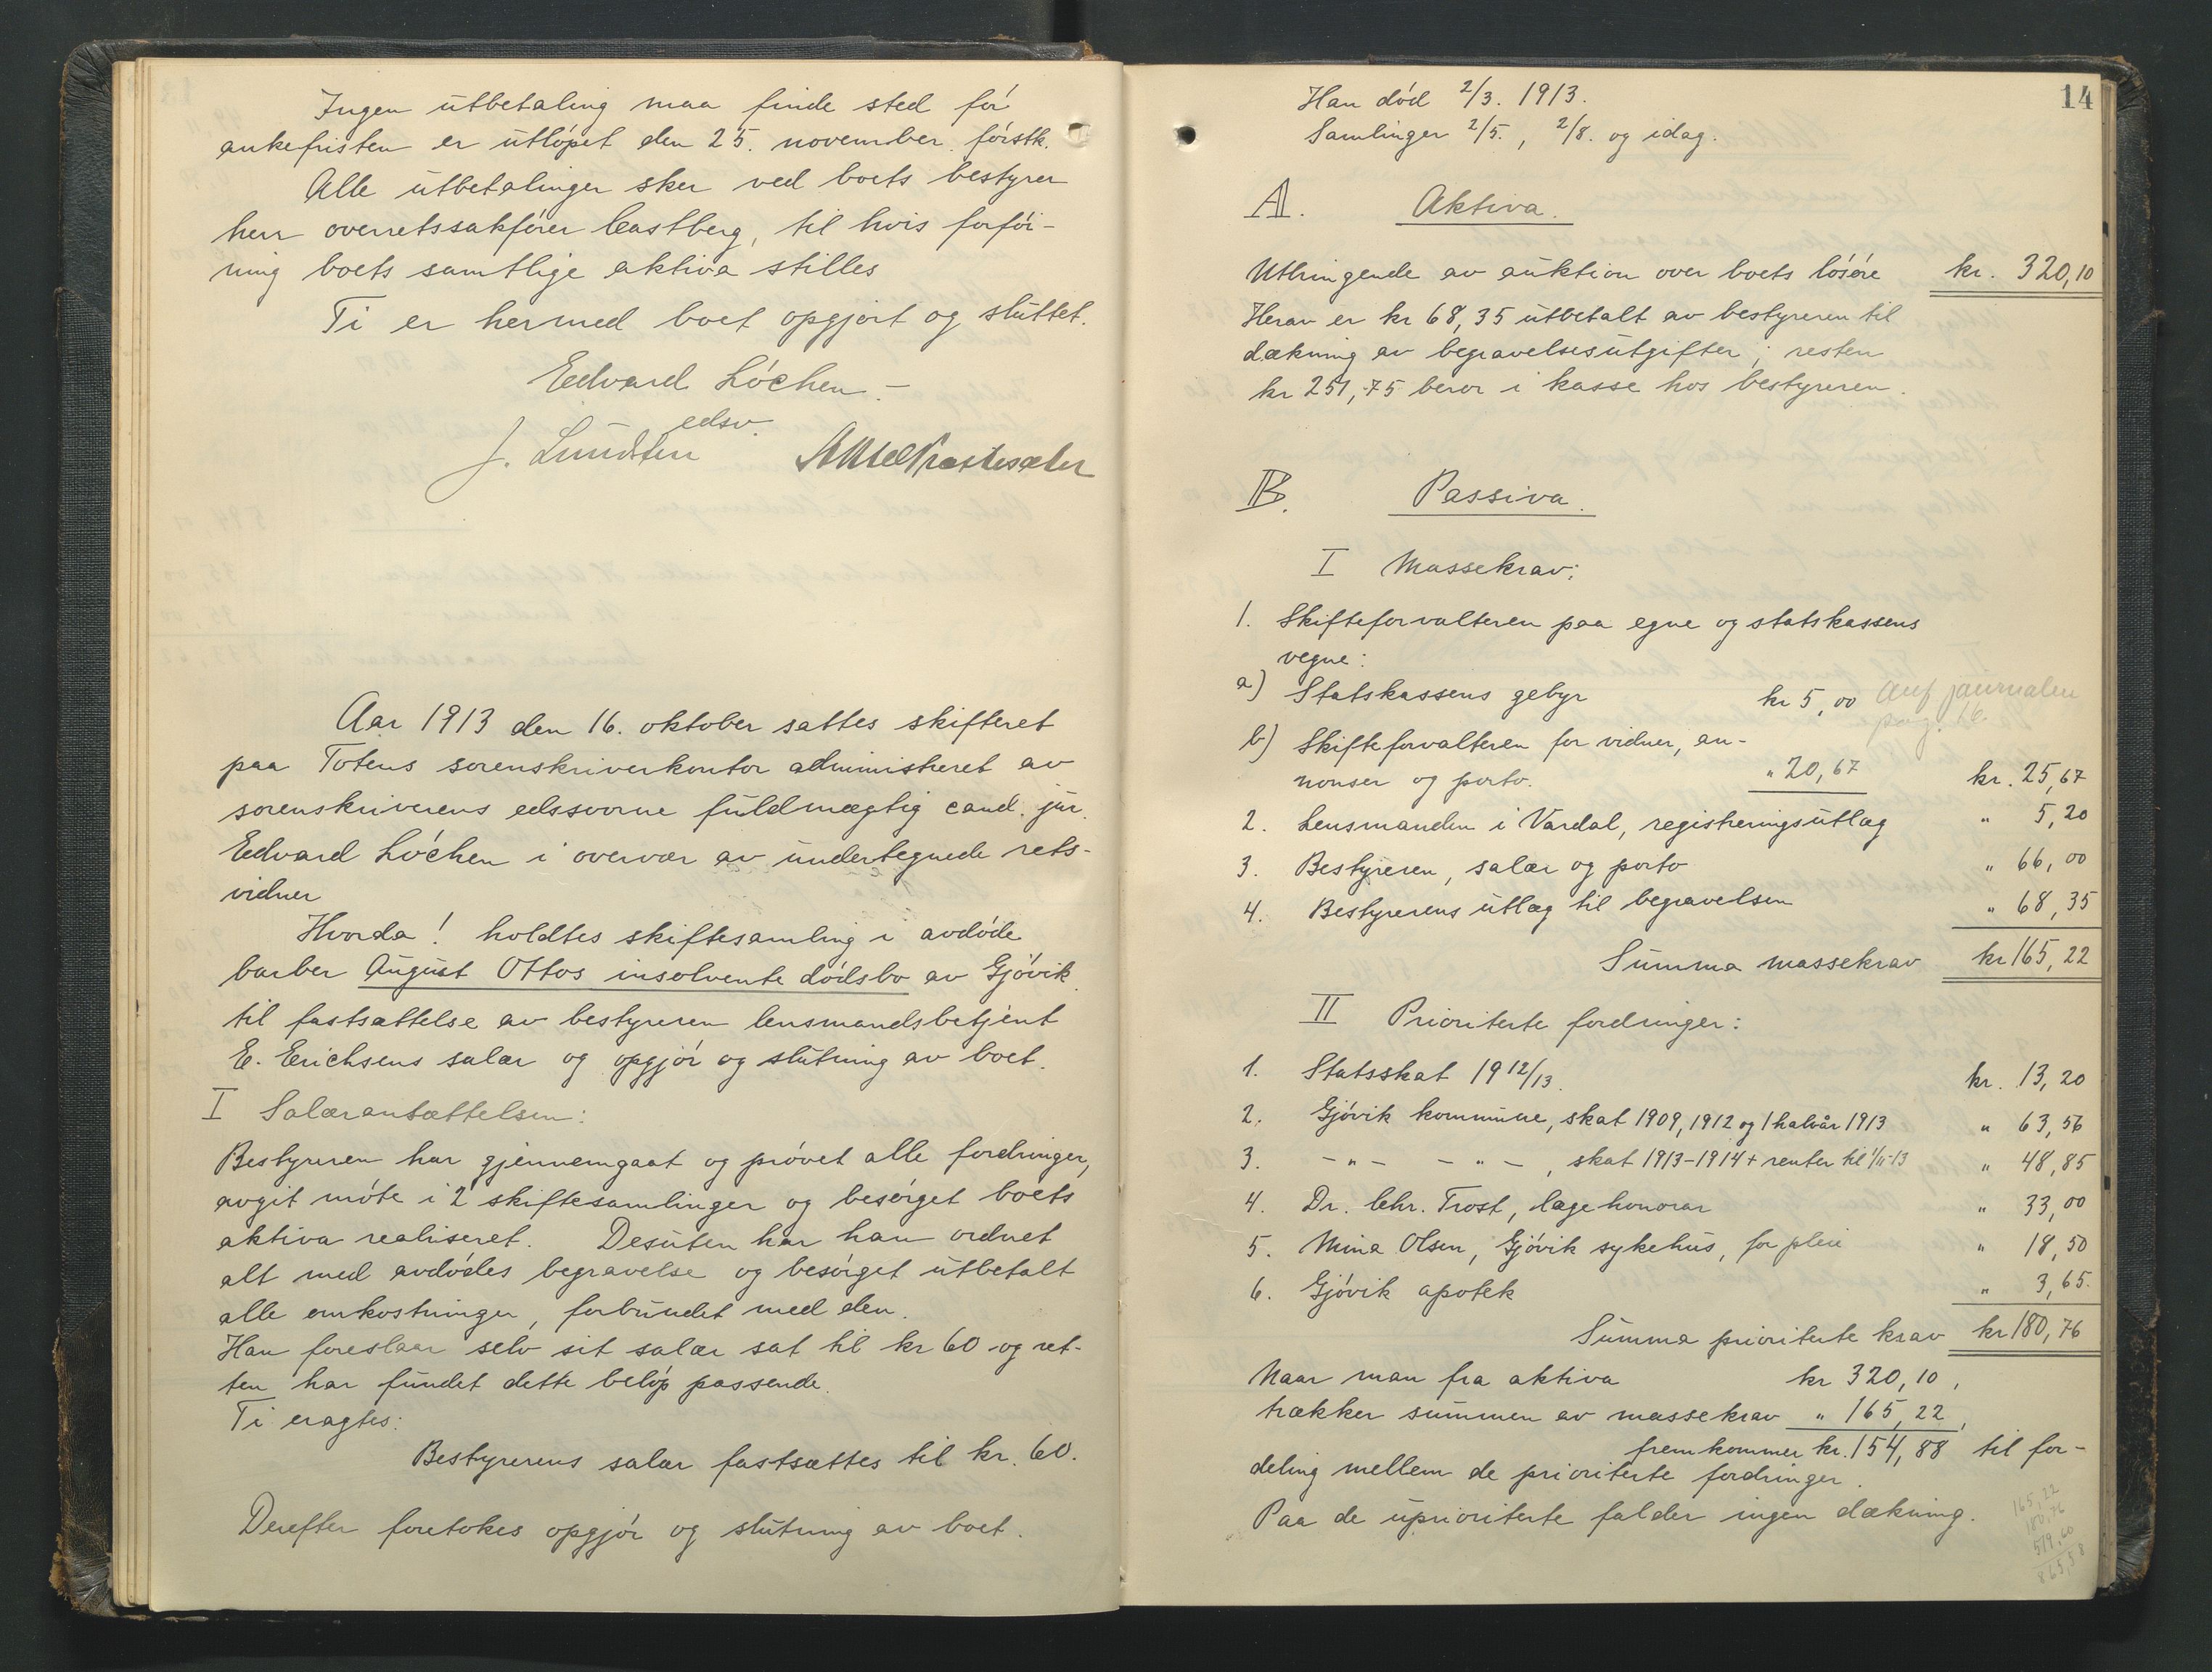 Ingen utbetaling maa finde sted før
ankefristen er utløpet den 25. november førstk.
Alle utbetalinger sker ved boets bestyrer
herr overretssakfører Castberg, til hvis forføi-
ning boets samtlige aktiva stilles
Ti er hermed boet opgjort og sluttet.
Edvard Løchen -
edsv.
J. Lundsten
Aar 1913 den 16. oktober sattes skifteret
paa Totens sorenskriverkontor administreret av
sorenskriverens edssvorne fuldmægtig cand. jur.
Edvard Løchen i overvær av undertegnede rets-
vidner
Hvorda! holdtes skiftesamling i avdøde
barber August Ottos insolvente dødsbo av Gjøvik
til fastsættelse av bestyreren lensmandsbetjent
E. Erichsens salær og opgjør og slutning av boet.
I Salæransættelsen:
Bestyreren har gjennemgaat og prøvet alle fordringer,
avgit møte i 2 skiftesamlinger og besørget boets
aktiva realiseret. Desuten har han ordnet
alt med avdødes begravelse og besørget utbetalt
alle omkostninger, forbundet med den.
Han foreslaar selv sit salær sat til kr 60 og ret-
ten har fundet dette beløp passende.
Ti eragtes:
Bestyrerens salær fastsættes til kr. 60.
Derefter foretokes opgjør og slutning av boet.
14
Han død 2/3. 1913.
Samlinger 2/5., 2/8. og idag.
A. Aktiva.
Utbringende av auktion over boets løsøre kr. 320,10
Herav er kr 68,35 utbetalt av bestyreren til
dækning av begravelsesutgifter; resten
kr 251,75 beror i kasse hos bestyreren.
B. Passiva.
I Massekrav:
1. Skifteforvalteren paa egne og statskassens
vegne:
a) Statskassens gebyr kr 5,00 Anf journalen
pag. 16.
b) Skifteforvalteren for vidner, an-
nonser og porto. " 20,67 kr. 25,67
2. Lensmanden i Vardal, registreringsutlæg " 5,20
3. Bestyreren, salær og porto " 66,00
4. Bestyrerens utlæg til begravelsen " 68,35
Summa massekrav kr 165,22
II Prioriterte fordringer:
1. Statsskat 1912/13. kr. 13,20
2. Gjøvik kommune, skat 1909, 1912 og 1 halvår 1913 " 63,56
3. - " - - " - , skat 1913-1914 + renter til 1/11-13 " 48,85
4. Dr. Chr. Trost, lægehonorar " 33,00
5. Mina Olsen, Gjøvik sykehus, for pleie " 18,50
6. Gjøvik apotek " 3,65.
Summa prioriterte krav kr 180,76
Naar man fra aktiva kr 320,10,
trækker summen av massekrav " 165,22,
fremkommer kr. 154,88 til for-
deling mellem de prioriterte fordringer.
Paa de uprioriterte falder ingen dækning.
165,22
180,76
519,60
865,58